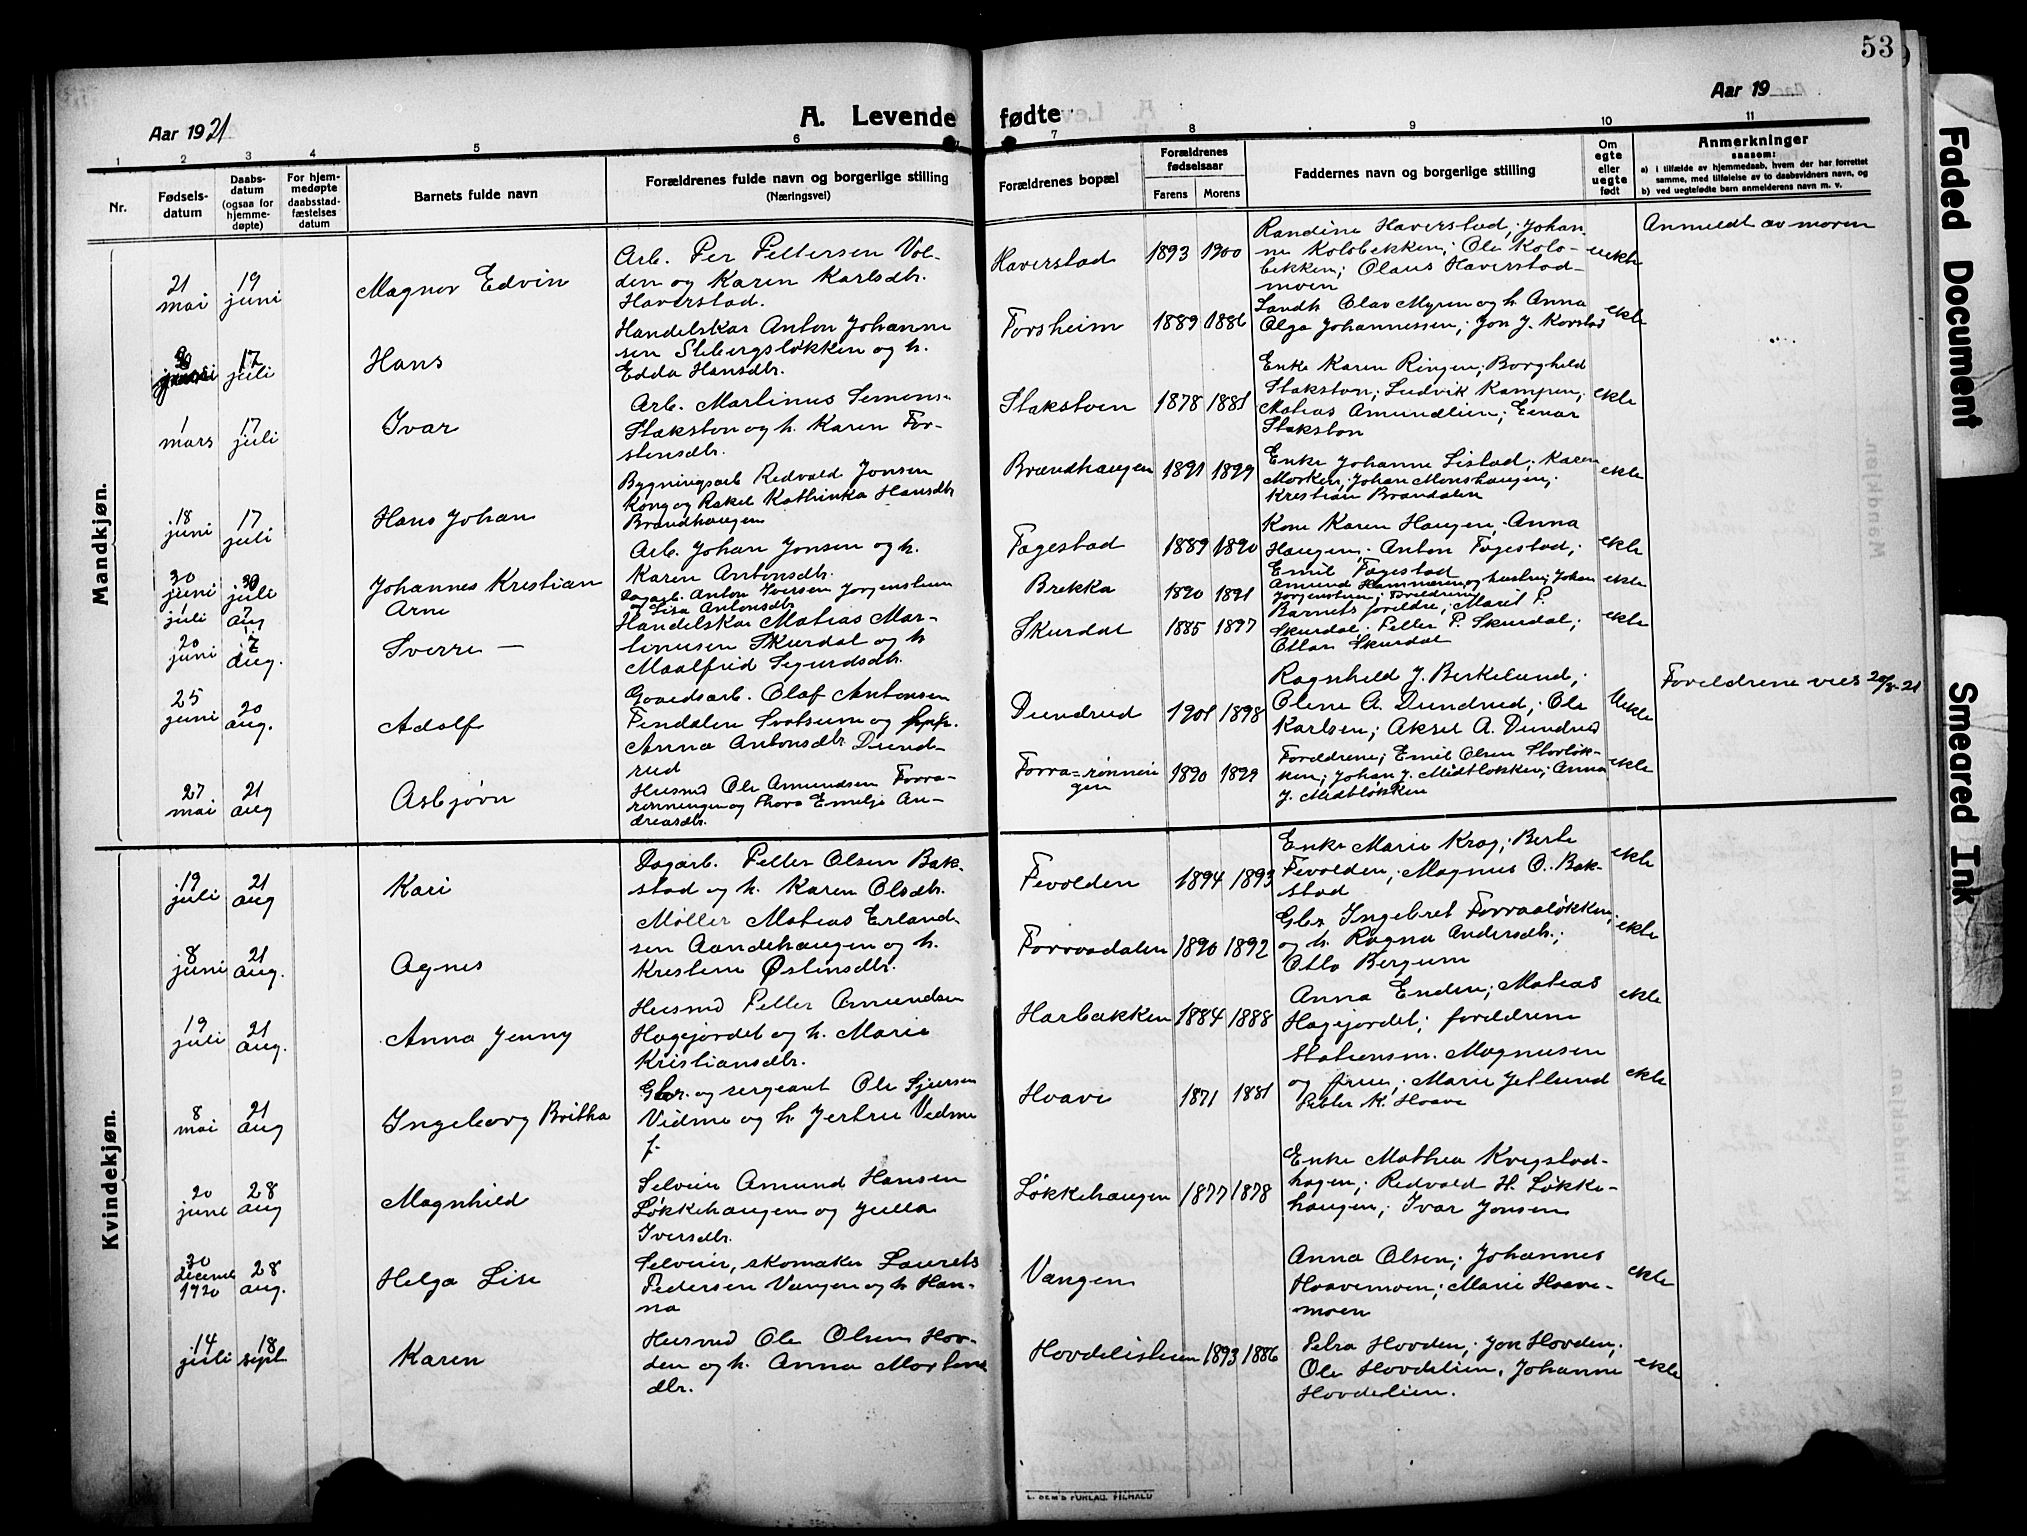 53
Aar 1921
A. Levende fødte
Aar 19
1 2 3 4 5 6 7 8 9 10 11
Nr.
Fødsels-
datum
Daabs-
datum
(ogsaa for
hjemme-
døpte)
For hjem-
medøpte
daabsstad-
fæstelses
datum
Barnets fulde navn
Forældrenes fulde navn og borgerlige stilling
(Næringsvei)
Forældrenes bopæl
Forældrenes
fødselsaar
Farens Morens
Faddernes navn og borgerlige stilling
Om
egte
eller
uegte
født
Anmerkninger
saasom:
a) i tilfælde av hjemmedaab, hvem der har forrettet
samme, med tilføielse av to daabsvidners navn, og
b) ved uegtefødte barn anmelderens navn m. v.
Mandkjøn.
21 mai
19 juni
Magnor Edvin
Arb. Per Pettersen Vol-
den og Karen Karlsdtr.
Haverstad.
Haverstad
1893 1900
Randine Haverstad; Johan
ne Kolobekken; Ole Kolo-
bekken; Olaus Haverstad-
moen
uekte
Anmeldt av moren
17 juli
Hans
Handelskar Anton Johanne
sen Slebergsløkken og h.
Edda Hansdtr.
Forsheim
1889 1886
Landh. Olav Myren og h. Anna
Olga Johannessen; Jon J. Korstad
ekte
1 mars
17 juli
Ivar
Arb. Martinus Semens-
Stakston og h. Karen Tor-
stensdtr.
Stakstoen
1878 1881
Enke Karen Ringen; Borghild
Stakston; Ludvik Kampen;
Matias Amundlien; Einar
Stakston
ekte
18 juni
17 juli
Hans Johan
Bygningsarb Redvald Jonsen
Kong og Rakel Kathinka Hansdtr
Brandhaugen
Brændhaugen
1891 1899
Enke Johanne Listad; Karen
Morken; Johan Monshaugen;
Kristian Brandalen
ekte
30 juni
30 juli
Johannes Kristian
Arb. Johan Jonsen og h.
Karen Antonsdtr.
Fagestad
1889 1890
Kone Karen Haugen; Anna
Haugen; Anton Fagestad;
Emil Fagestad
ekte
1 juli
7 aug
Arne
Dagarb. Anton Iversen Jorgenstuen
og Lisa Antonsdtr
Brekka
1890 1891
Amund Hammeren og hustru; Johan
Jorgenstuen; Foreldrene
ekte
20 juni
7 aug.
Sverre —
Handelskar Matias Mar-
tinusen Skurdal og h
Maalfrid Sigurdsdtr.
Skurdal
1885 1897
Barnets foreldre; Marit P.
Skurdal; Petter P. Skurdal;
Ottar Skurdal
ekte
25 juni
20 aug.
Adolf
Gaardsarb. Olaf Antonsen
Findalen Svatsum og
Anna Antonsdtr Dund-
rud
Dundrud
1901 1898
Ragnhild J. Berkelund;
Olene A. Dundrud; Ole
Karlsen; Aksel A. Dundrud
Uekte
Foreldrene vies 20/8-21
27 mai
21 aug
Asbjørn
Husmd Ole Amundsen Forra-
rønningen og Thora Emilje An-
dreasdtr.
Forra-rønnin
gen
1890 1899
Foreldrene; Emil Olsen Storløk-
ken; Johan J. Midtløkken; Anna
J. Midtløkken
ekte
Kvindekjøn.
19 juli
21 aug
Kari
Dagarb. Petter Olsen Bak-
stad og h. Karen Olsdtr.
Fevolden
1894 1893
Enke Marie Krag; Berte
Fevolden; Magnus O. Bak-
stad
ekte
8 juni
21 aug.
Agnes
Møller Matias Erland-
sen Aandehaugen og h.
Kristine Østensdtr.
Forraadalen
1890 1892
Gbr Ingebret Forraaløkken;
og h. Ragna Andersdtr.;
Otto Bergum
ekte
19 juli
21 aug.
Anna Jenny
Husmd Petter Amundsen
Hagejordet og h. Marie
Kristiansdtr.
Harbakken
1884 1888
Anna Enden; Matias
Hagejordet; foreldrene
ekte
8 mai
21 aug
Ingeborg Britha
Gbr. og sergeant Ole Sjursen
Vidme og h. Jertru Vidme
f.
Hoave
1871 1881
Stationsm. Magnusen
og frue; Marie Jetlund
Petter K. Hoave
ekte
20 june
28 aug
Magnhild
Selveier Amund Hansen
Løkkehaugen og Julla
Iversdtr.
Løkkehaugen
1877 1878
Enke Mathea Kvegstad-
hagen; Redvald H. Løkke-
haugen; Ivar Jonsen
ekte
30 decemb 1920
28 aug.
Helga Lise
Selveier, skomaker Laurets
Pedersen Vangen og h Han-
na
Vangen
Anna Olsen; Johannes
Hoavemoen; Marie Hoave-
moen
ekte
14 juli
18 sept.
Karen
Husmd Ole Olsen Hov-
den og h. Anna Martine
dtr.
Hovdelistuen
1893 1886
Petra Hovden; Jon Hovden;
Ole Hovdelien, Johanne
Hovdelien.
ekte
Faded Document
Smeared Ink